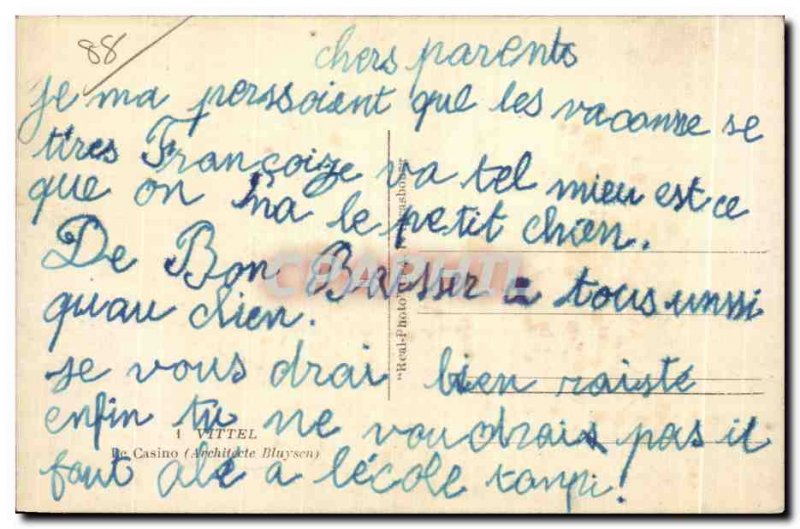 88
chers parents
je ma perssoient que les vacanse se
tires Françoize va tel mieu est ce
que on ha le petit chien.
De Bon Baisser a tous unssi
quau chien.
je vous drai bien raisté
enfin tu ne voudrais pas il
faut alé a l'école tanpi!
1 VITTEL
Le Casino (Architecte Bluysen)
"Real-Photo"
CARAPHIL